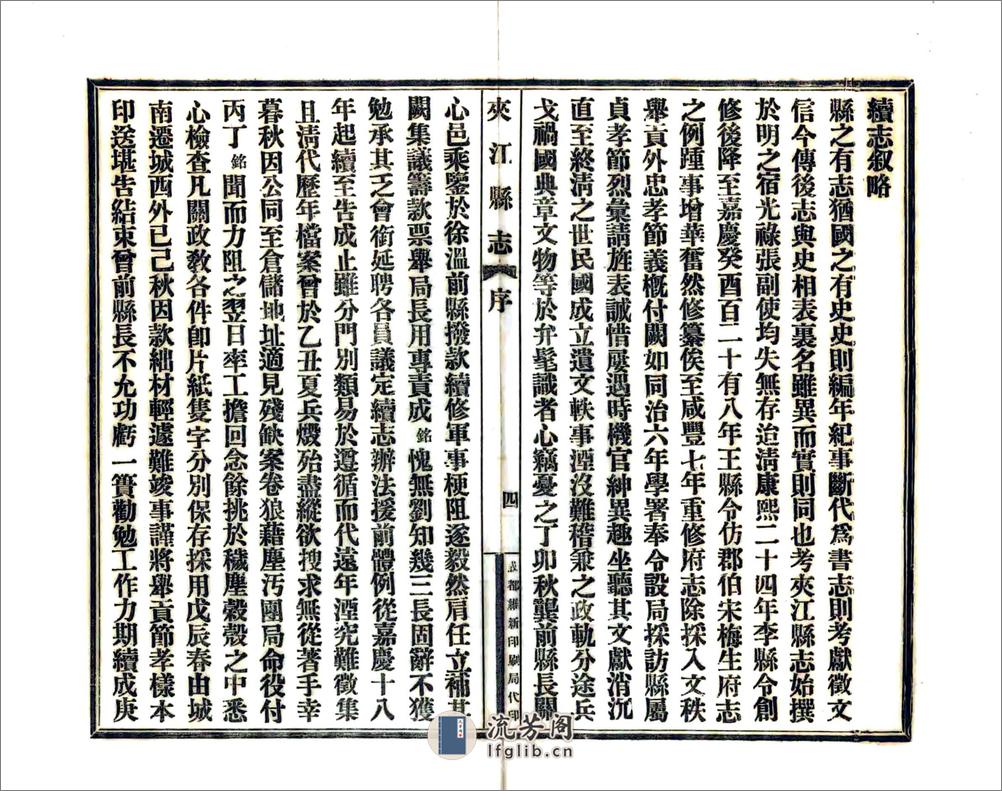 續志叙略
縣之有志猶國之有史史則編年紀事斷代爲書志則考獻徵文
信今傳後志與史相表裏名雖異而實則同也考夾江縣志始撰
於明之宿光祿張副使均失無存迨淸康熙二十四年李縣令創
修後降至嘉慶癸酉百二十有八年王縣令仿郡伯宋梅生府志
之例踵事增華奮然修纂俟至咸豐七年重修府志除採入文秩
舉貢外忠孝節義槪付闕如同治六年學署奉令設局採訪縣屬
貞孝節烈彙請旌表誠惜屢遇時機官紳異趣坐聽其文獻消沉
直至終淸之世民國成立遺文軼事湮沒難稽兼之政軌分途兵
戈禍國典章文物等於弁髦識者心竊憂之丁卯秋龔前縣長關
夾江縣志 序 四 成都維新印刷局代印
心邑乘鑒於徐溫前縣撥款續修軍事梗阻遂毅然肩任立補其
闕集議籌款票舉局長用專責成銘愧無劉知幾三長固辭不獲
勉承其乏會銜延聘各員議定續志辦法援前體例從嘉慶十八
年起續至告成止雖分門別類易於遵循而代遠年湮究難徵集
且淸代歷年檔案曾於乙丑夏兵燬殆盡縱欲搜求無從著手幸
暮秋因公同至倉儲地址適見殘缺案卷狼藉塵汚團局命役付
丙丁銘聞而力阻之翌日率工擔回念餘挑於穢塵穀殼之中悉
心檢查凡關政敎各件卽片紙隻字分別保存採用戊辰春由城
南遷城西外已己秋因款絀材輕遽難竣事謹將舉貢節孝樣本
印送堪告結束曾前縣長不允功虧一簣勸勉工作力期續成庚
流芳阁
lfglib.cn